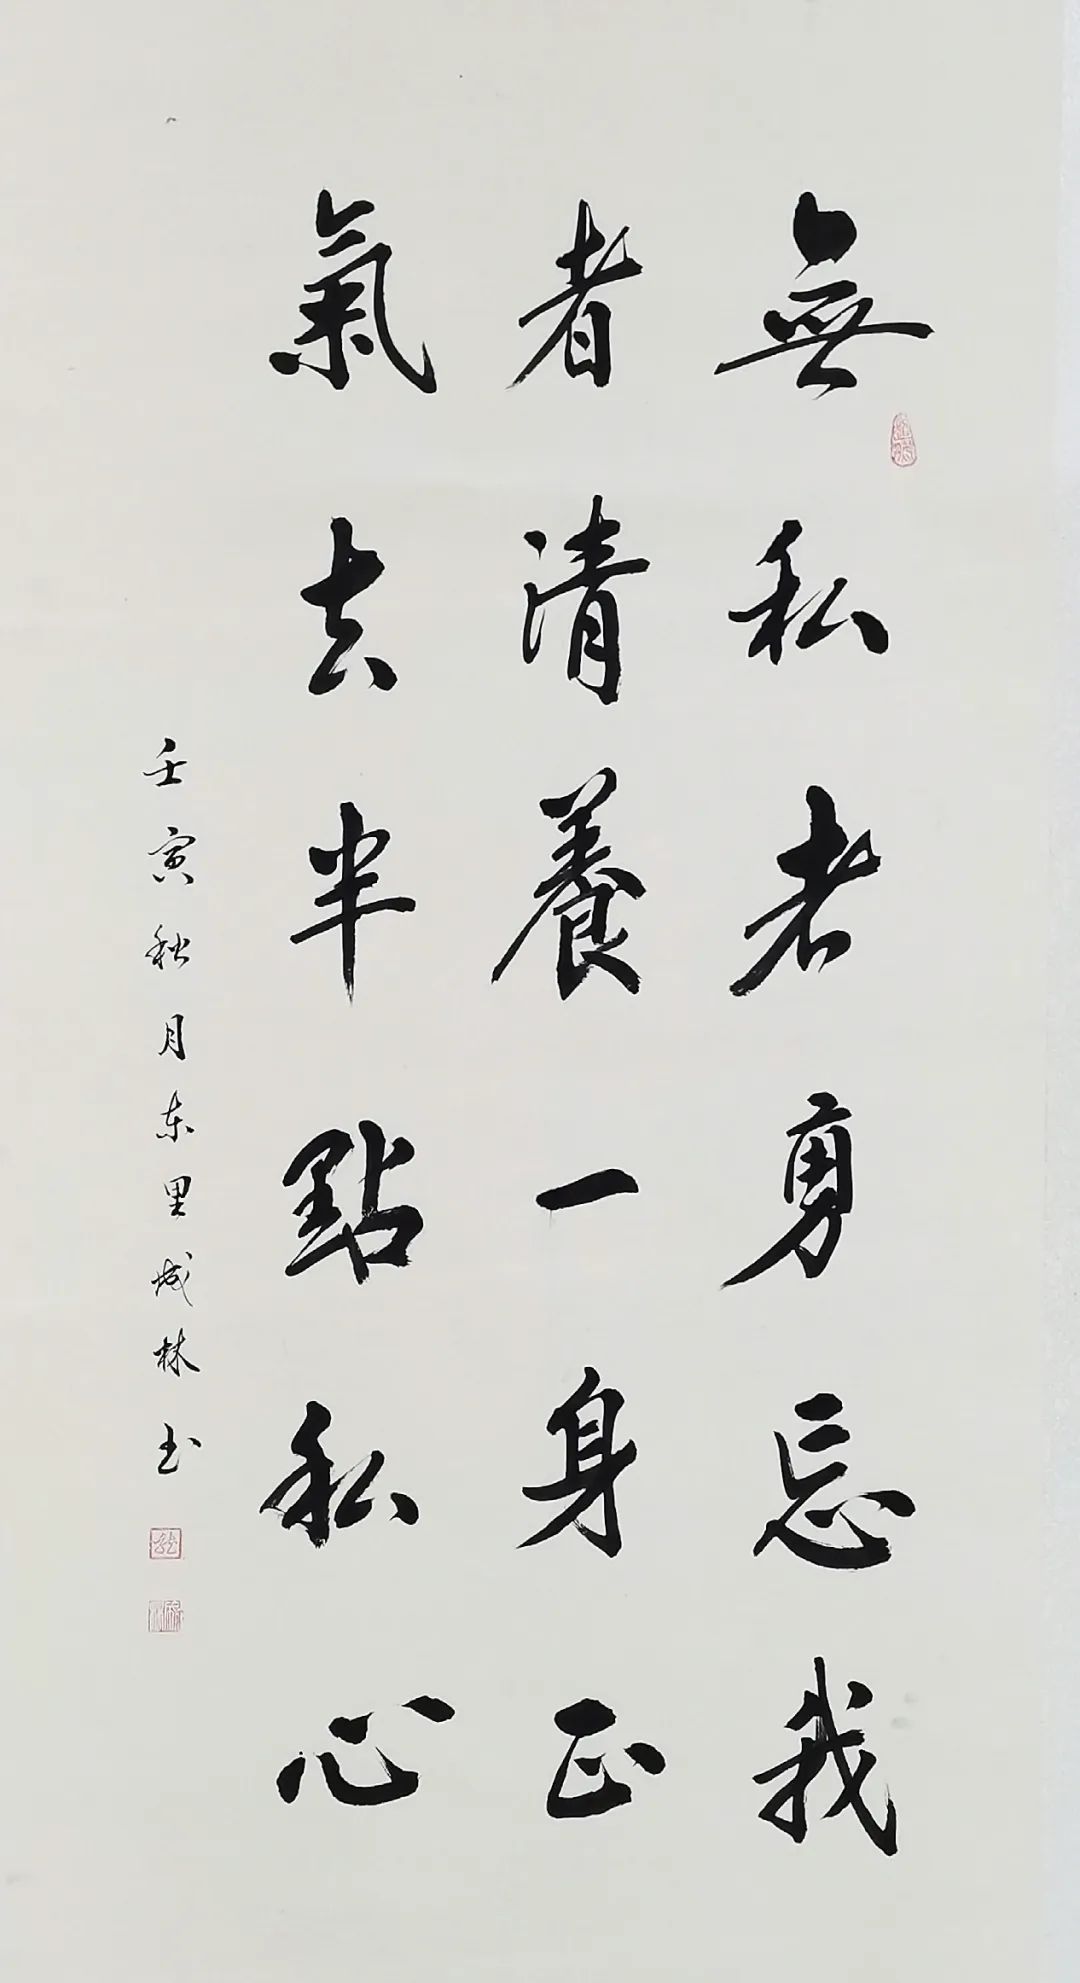 無私者勇忘我
者清養一身正
氣去半點私心
壬寅秋月东里成林玉